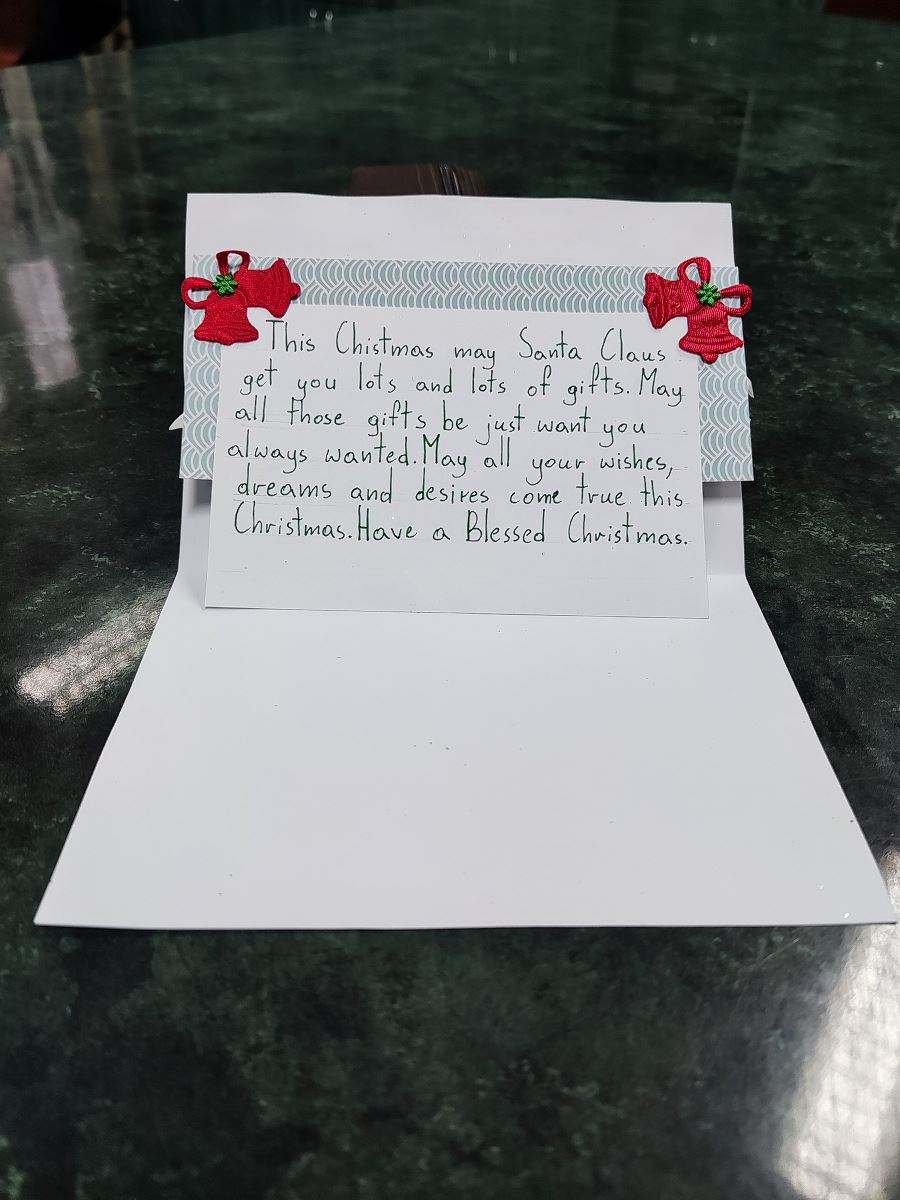 This Chistmas may Santa Claus
get you lots and lots of gifts. May
all those gifts be just want you
always wanted. May all your wishes,
dreams and desires come true this
Christmas. Have a Blessed Christmas.